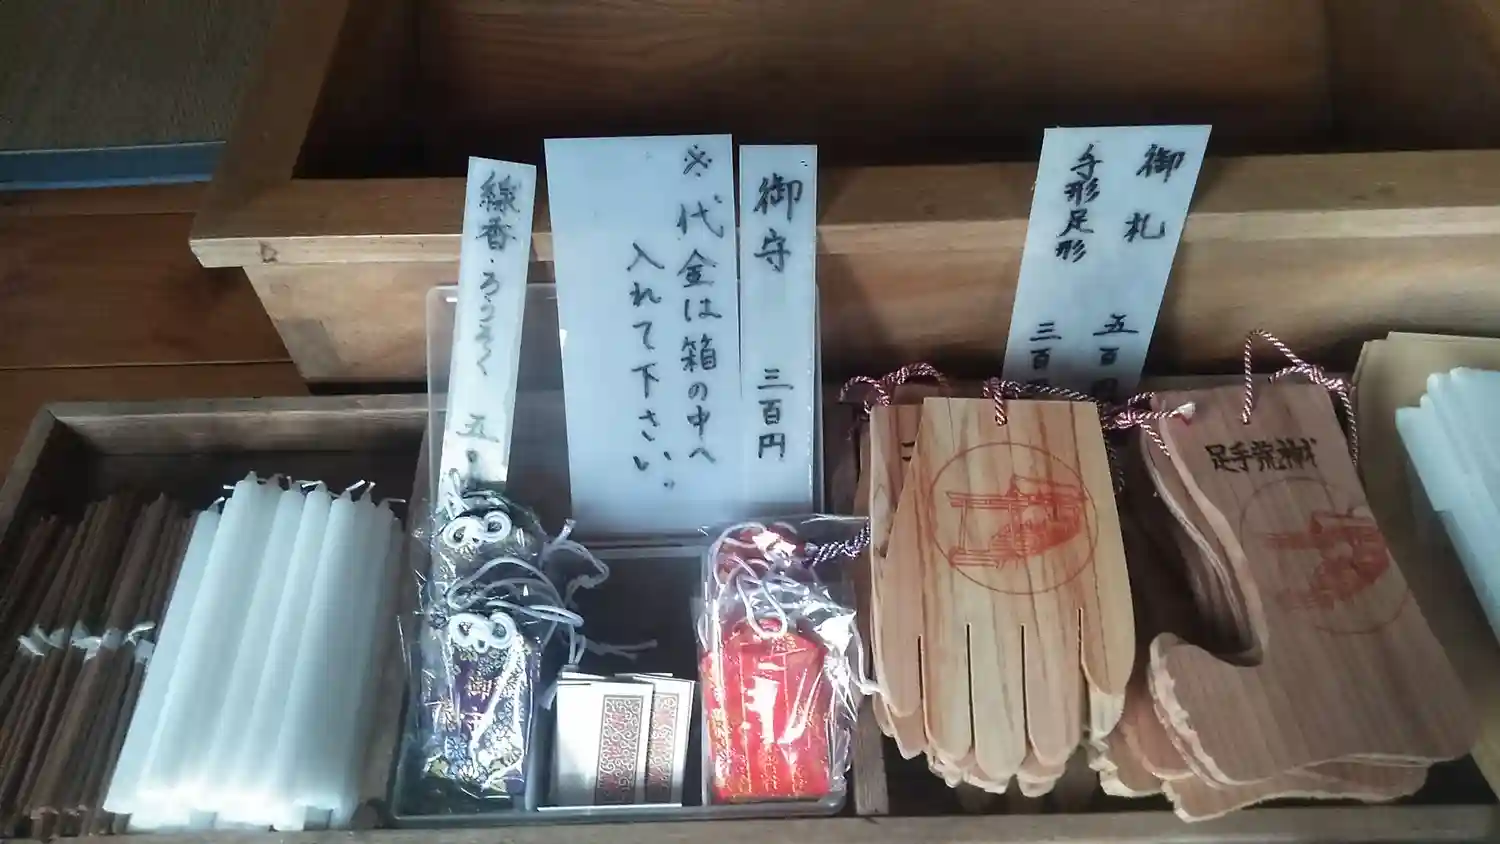 線香・ろうそく 五
※代金は箱の中へ
入れて下さい。
御守 三百円
御札 五百円
手形足形 三百
足手荒神